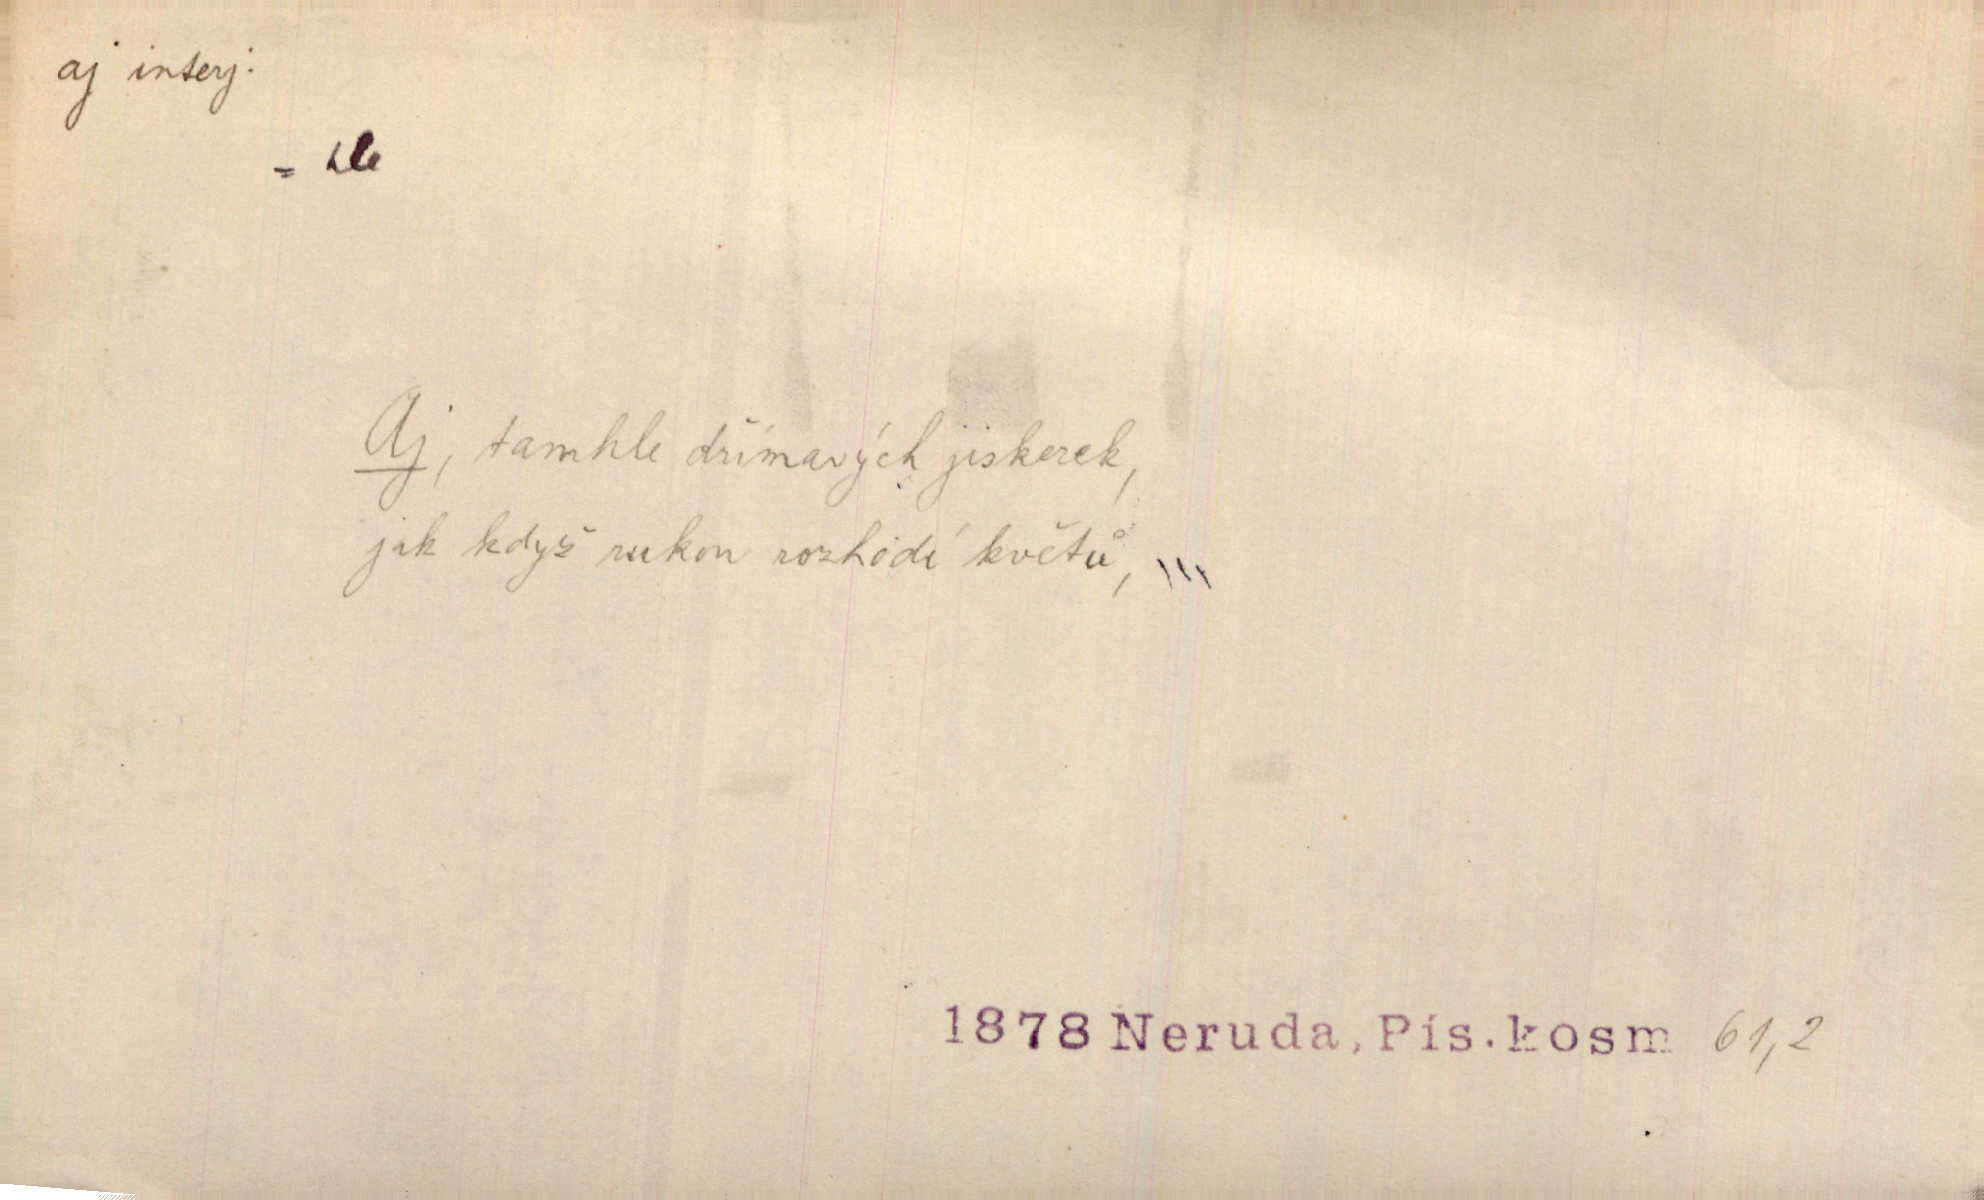 aj interj.
= hle
Aj, tamhle dřímavých jiskerek,
jak když rukou rozhodí květů, \\\
1878 Neruda, Pís. kosm 61,2